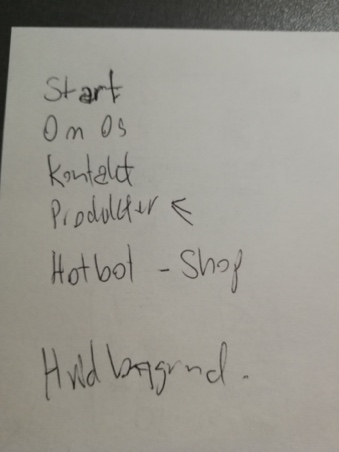 Start
Om Os
Kontakt
Produkter <
Hotbot - Shop
Hvid baggrund.